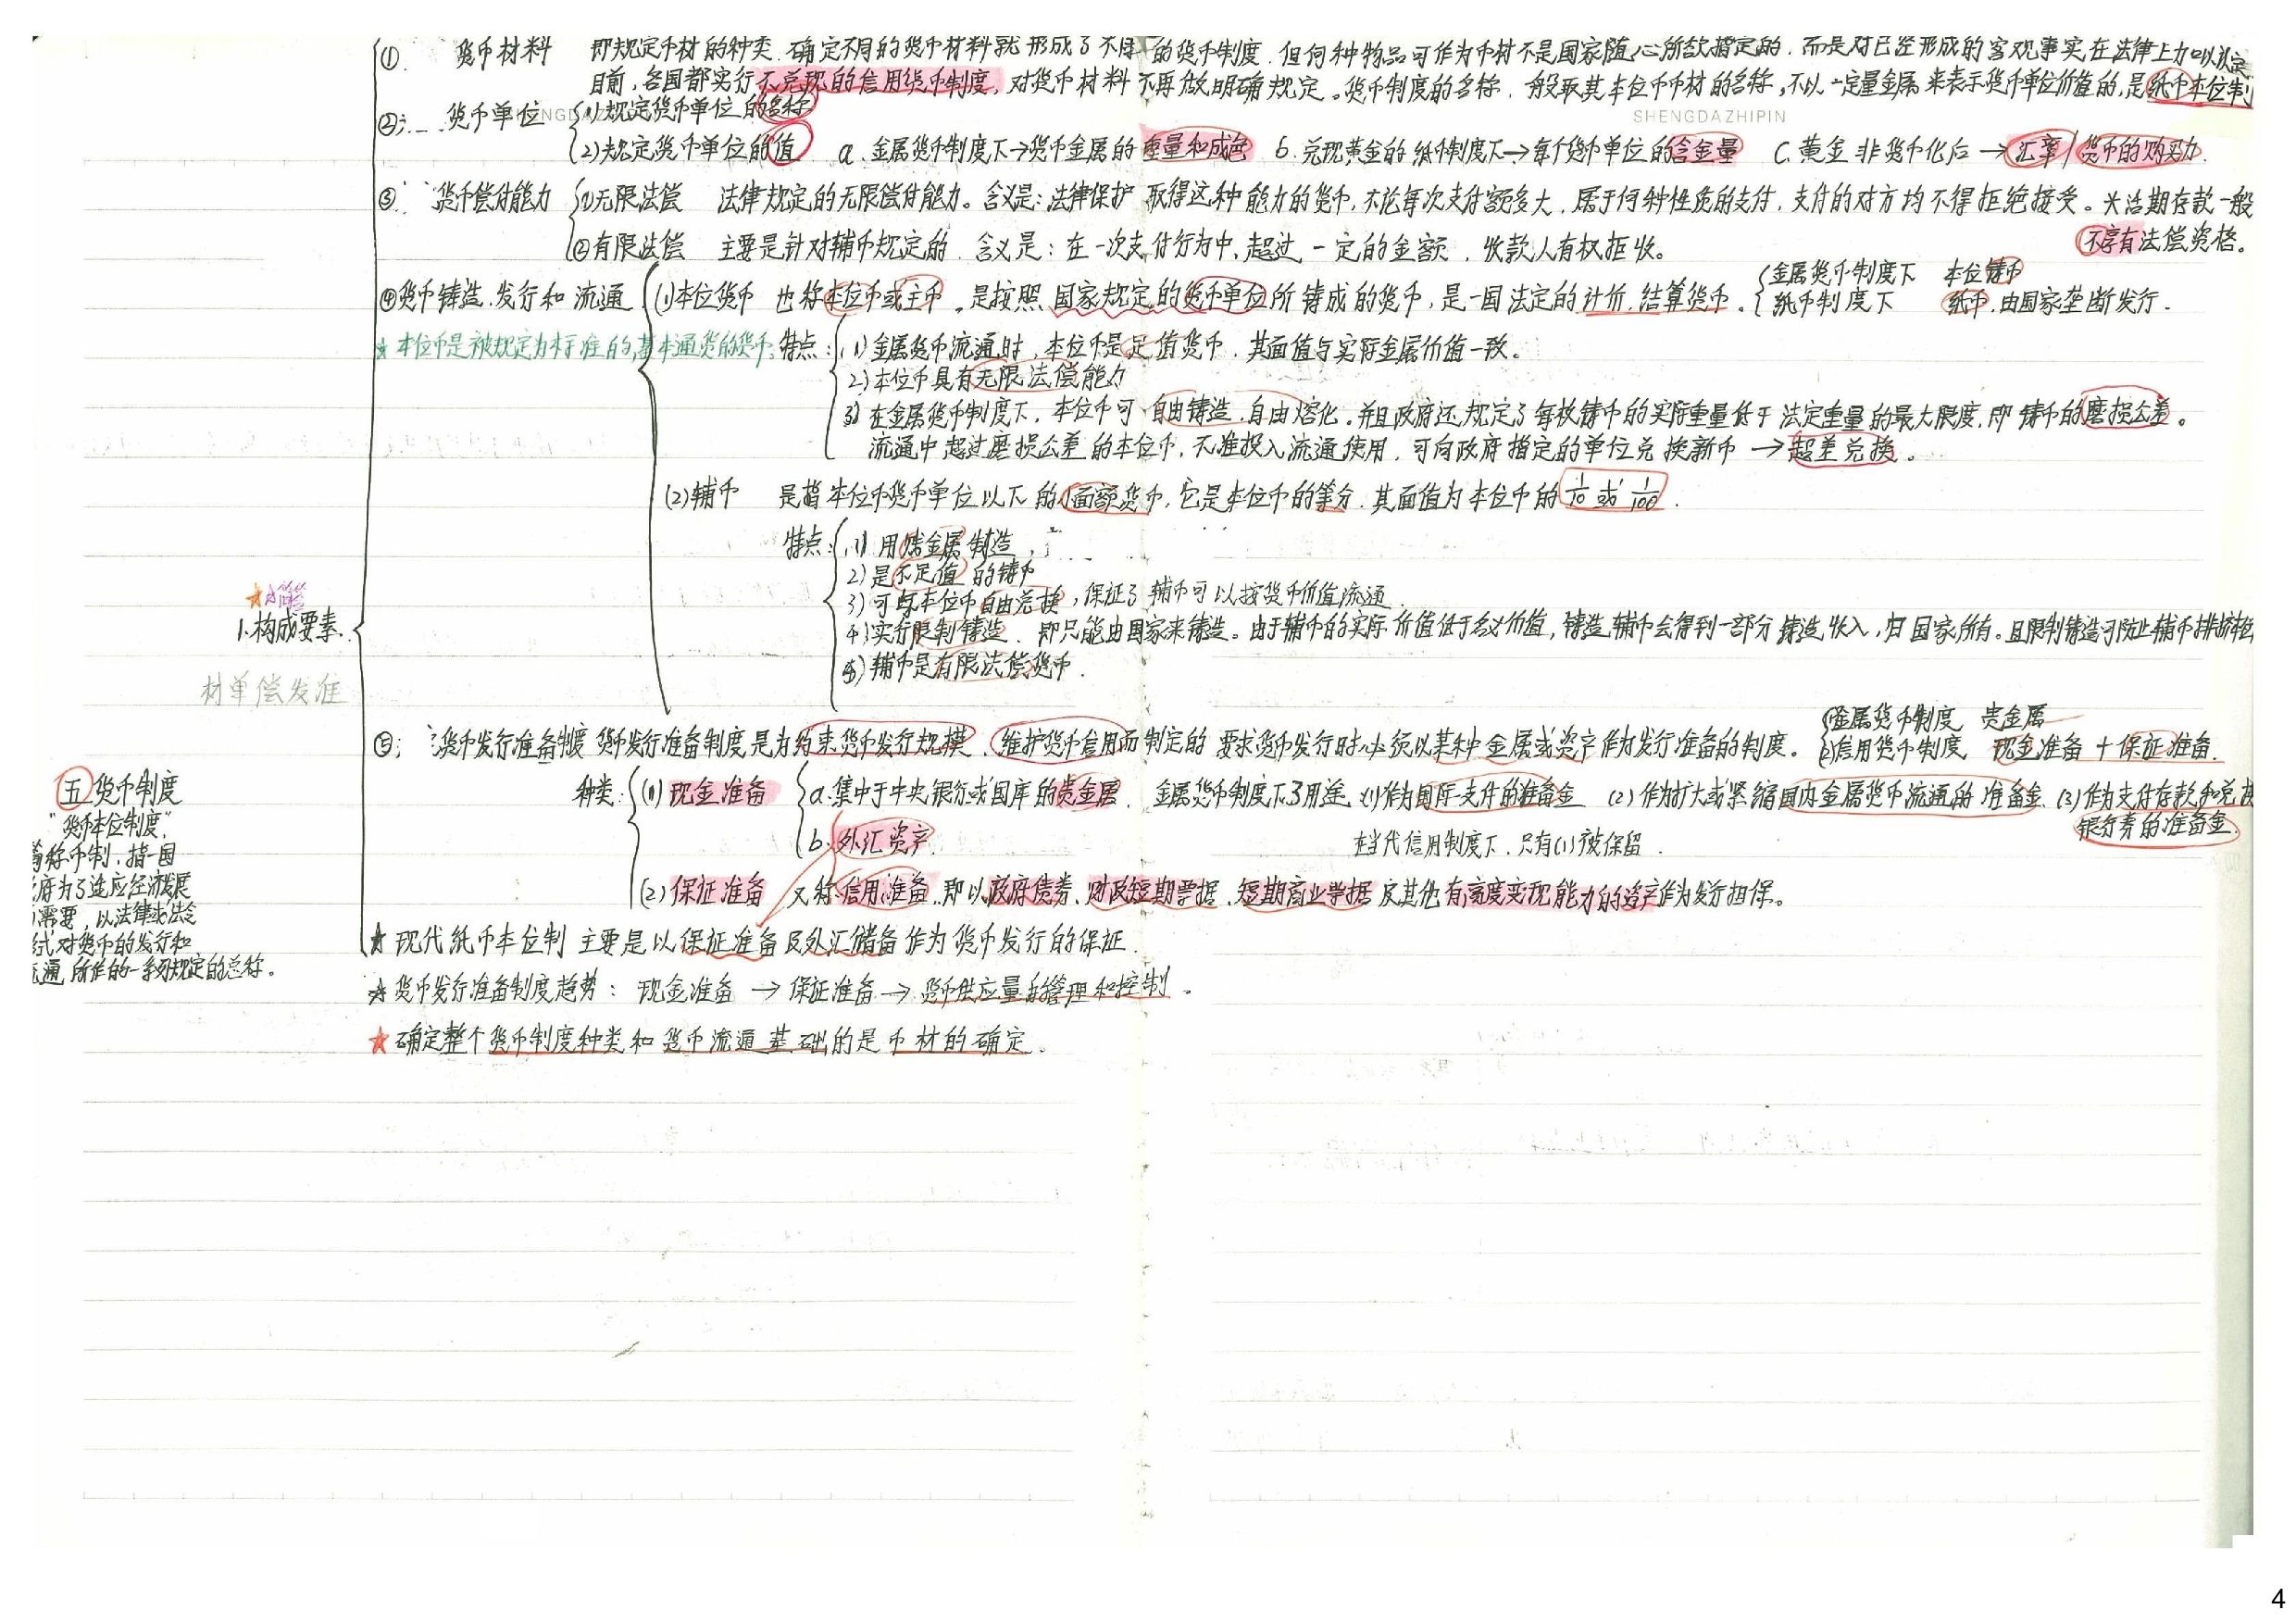 ① 货币材料 即规定币材的种类，确定不同的货币材料就形成了不同的货币制度，但何种物品可作为币材不是国家随心所欲指定的，而是对已经形成的客观事实在法律上加以认定
目前，各国都实行不兑现的信用货币制度，对货币材料不再做明确规定。货币制度的名称，一般取其本位币币材的名称，不以一定量金属来表示货币单位价值的，是纸币本位制
② 货币单位 (1)规定货币单位的名称
SHENGDAZHIPIN
(2)规定货币单位的值 a.金属货币制度下→货币金属的重量和成色 b.兑现黄金的纸币制度下→每个货币单位的含金量 c.黄金非货币化后→汇率/货币的购买力.
③ 货币偿付能力 ①无限法偿 法律规定的无限偿付能力。含义是：法律保护取得这种能力的货币，不论每次支付额多大，属于何种性质的支付，支付的对方均不得拒绝接受。※活期存款一般
不享有法偿资格。
②有限法偿 主要是针对辅币规定的，含义是：在一次支付行为中，超过一定的金额，收款人有权拒收。
④货币铸造、发行和流通 (1)本位货币 也称本位币或主币，是按照国家规定的货币单位所铸成的货币，是一国法定的计价、结算货币。
金属货币制度下 本位铸币
纸币制度下 纸币，由国家垄断发行.
☆本位币是被规定为标准的,基本通货的货币.
特点： 1)金属货币流通时，本位币是足值货币，其面值与实际金属价值一致。
2)本位币具有无限法偿能力
3)在金属货币制度下，本位币可自由铸造、自由熔化，并且政府还规定了每枚铸币的实际重量低于法定重量的最大限度，即铸币的磨损公差。
流通中超过磨损公差的本位币，不准投入流通使用，可向政府指定的单位兑换新币→超差兑换。
(2)辅币 是指本位币货币单位以下的小面额货币，它是本位币的等分，其面值为本位币的1/10或1/100.
特点： 1)用贱金属制造
2)是不足值的铸币
3)可与本位币自由兑换，保证了辅币可以按货币价值流通.
4)实行限制铸造，即只能由国家来铸造。由于辅币的实际价值低于名义价值，铸造辅币会得到一部分铸造收入，归国家所有。且限制铸造可防止辅币排挤
5)辅币是有限法偿货币.
★简答
1.构成要素.
材单偿发准
⑤ 货币发行准备制度 货币发行准备制度是为约束货币发行规模、维护货币信用而制定的 要求货币发行时必须以某种金属或资产作为发行准备的制度。
(1)金属货币制度 贵金属
(2)信用货币制度 现金准备+保证准备.
种类： (1)现金准备 a.集中于中央银行或国库的贵金属. 金属货币制度下3用途 (1)作为国际支付的准备金 (2)作为扩大或紧缩国内金属货币流通的准备金 (3)作为支付存款和兑换
银行券的准备金.
b.外汇资产.
在当代信用制度下，只有(1)被保留.
(2)保证准备 又称信用准备，即以政府债券、财政短期票据、短期商业票据及其他有高度变现能力的资产作为发行担保。
★现代纸币本位制主要是以保证准备及外汇储备作为货币发行的保证.
☆货币发行准备制度趋势：现金准备→保证准备→货币供应量的管理和控制。
★确定整个货币制度种类和货币流通基础的是币材的确定。
五 货币制度
"货币本位制度"
简称币制，指一国
政府为了适应经济发展
需要，以法律或法令
形式对货币的发行和
流通所作的一系列规定的总称。
4